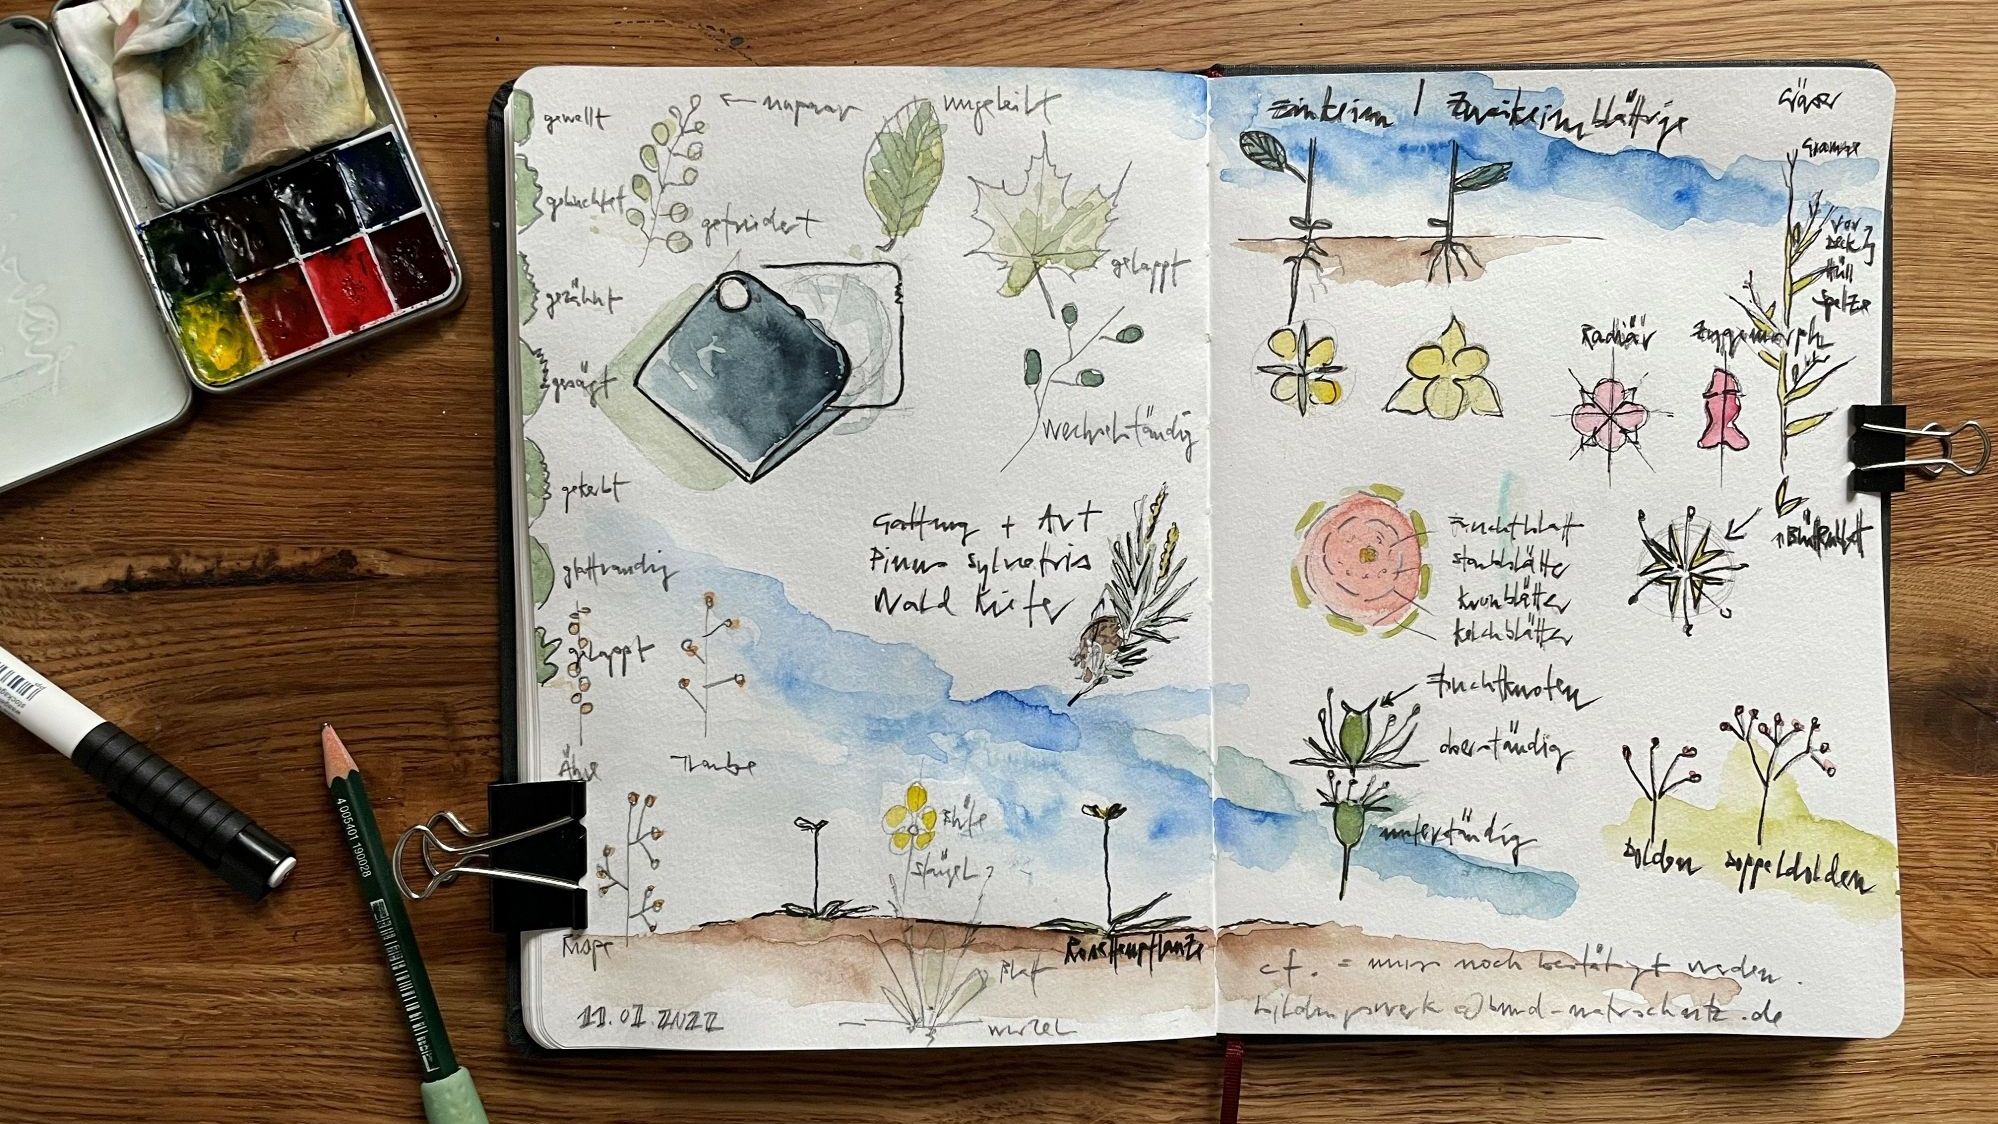 gewellt
← unpaar
ungeteilt
gebuchtet
gefiedert
gezähnt
gelappt
gesägt
wechselständig
gekerbt
Gattung + Art
Pinus Sylvestris
Wald Kiefer
glattrandig
gelappt
Ähre
Traube
Blüte
Stängel
Rispe
Rosettenpflanze
Blatt
11.01.2022
Wurzel
Einkeim | Zweikeimblättrige
Gräser
Granne
vor
Deck
Hüll
Spelze
Radiär
Zygomorph
Fruchtblatt
Staubblätter
Kronblätter
Kelchblätter
Fruchtknoten
oberständig
unterständig
Dolden
Doppeldolden
cf. = muss noch bestätigt werden.
bildungswerk@bund-naturschutz.de
4 005401 190028